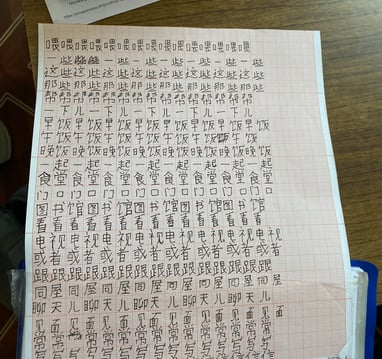 喂喂喂喂喂喂喂喂喂喂喂喂喂喂
一些些些 一些 一些 一些 一些
这些这些这些这些这些这些
那些那些那些那些那些那些
帮帮帮帮帮帮帮帮帮帮帮帮
一下儿一下儿一下儿一下儿
早饭早饭早饭早饭早饭早饭
午饭午饭午饭午饭午饭午饭
晚饭晚饭晚饭晚饭晚饭晚饭
一起一起一起一起一起一起
食堂食堂食堂食堂食堂食堂
门口门口门口门口门口门口
图书馆图书馆图书馆图书馆
看看看看看看看看看看看看
电视电视电视电视电视电视
或者或者或者或者或者或者
跟跟跟跟跟跟跟跟跟跟跟跟
同屋同屋同屋同屋同屋同屋
聊天儿聊天儿聊天儿聊天儿
见面见面见面见面见面见面
常常常常常常常常常常常常
写写写写写写写写写写写写